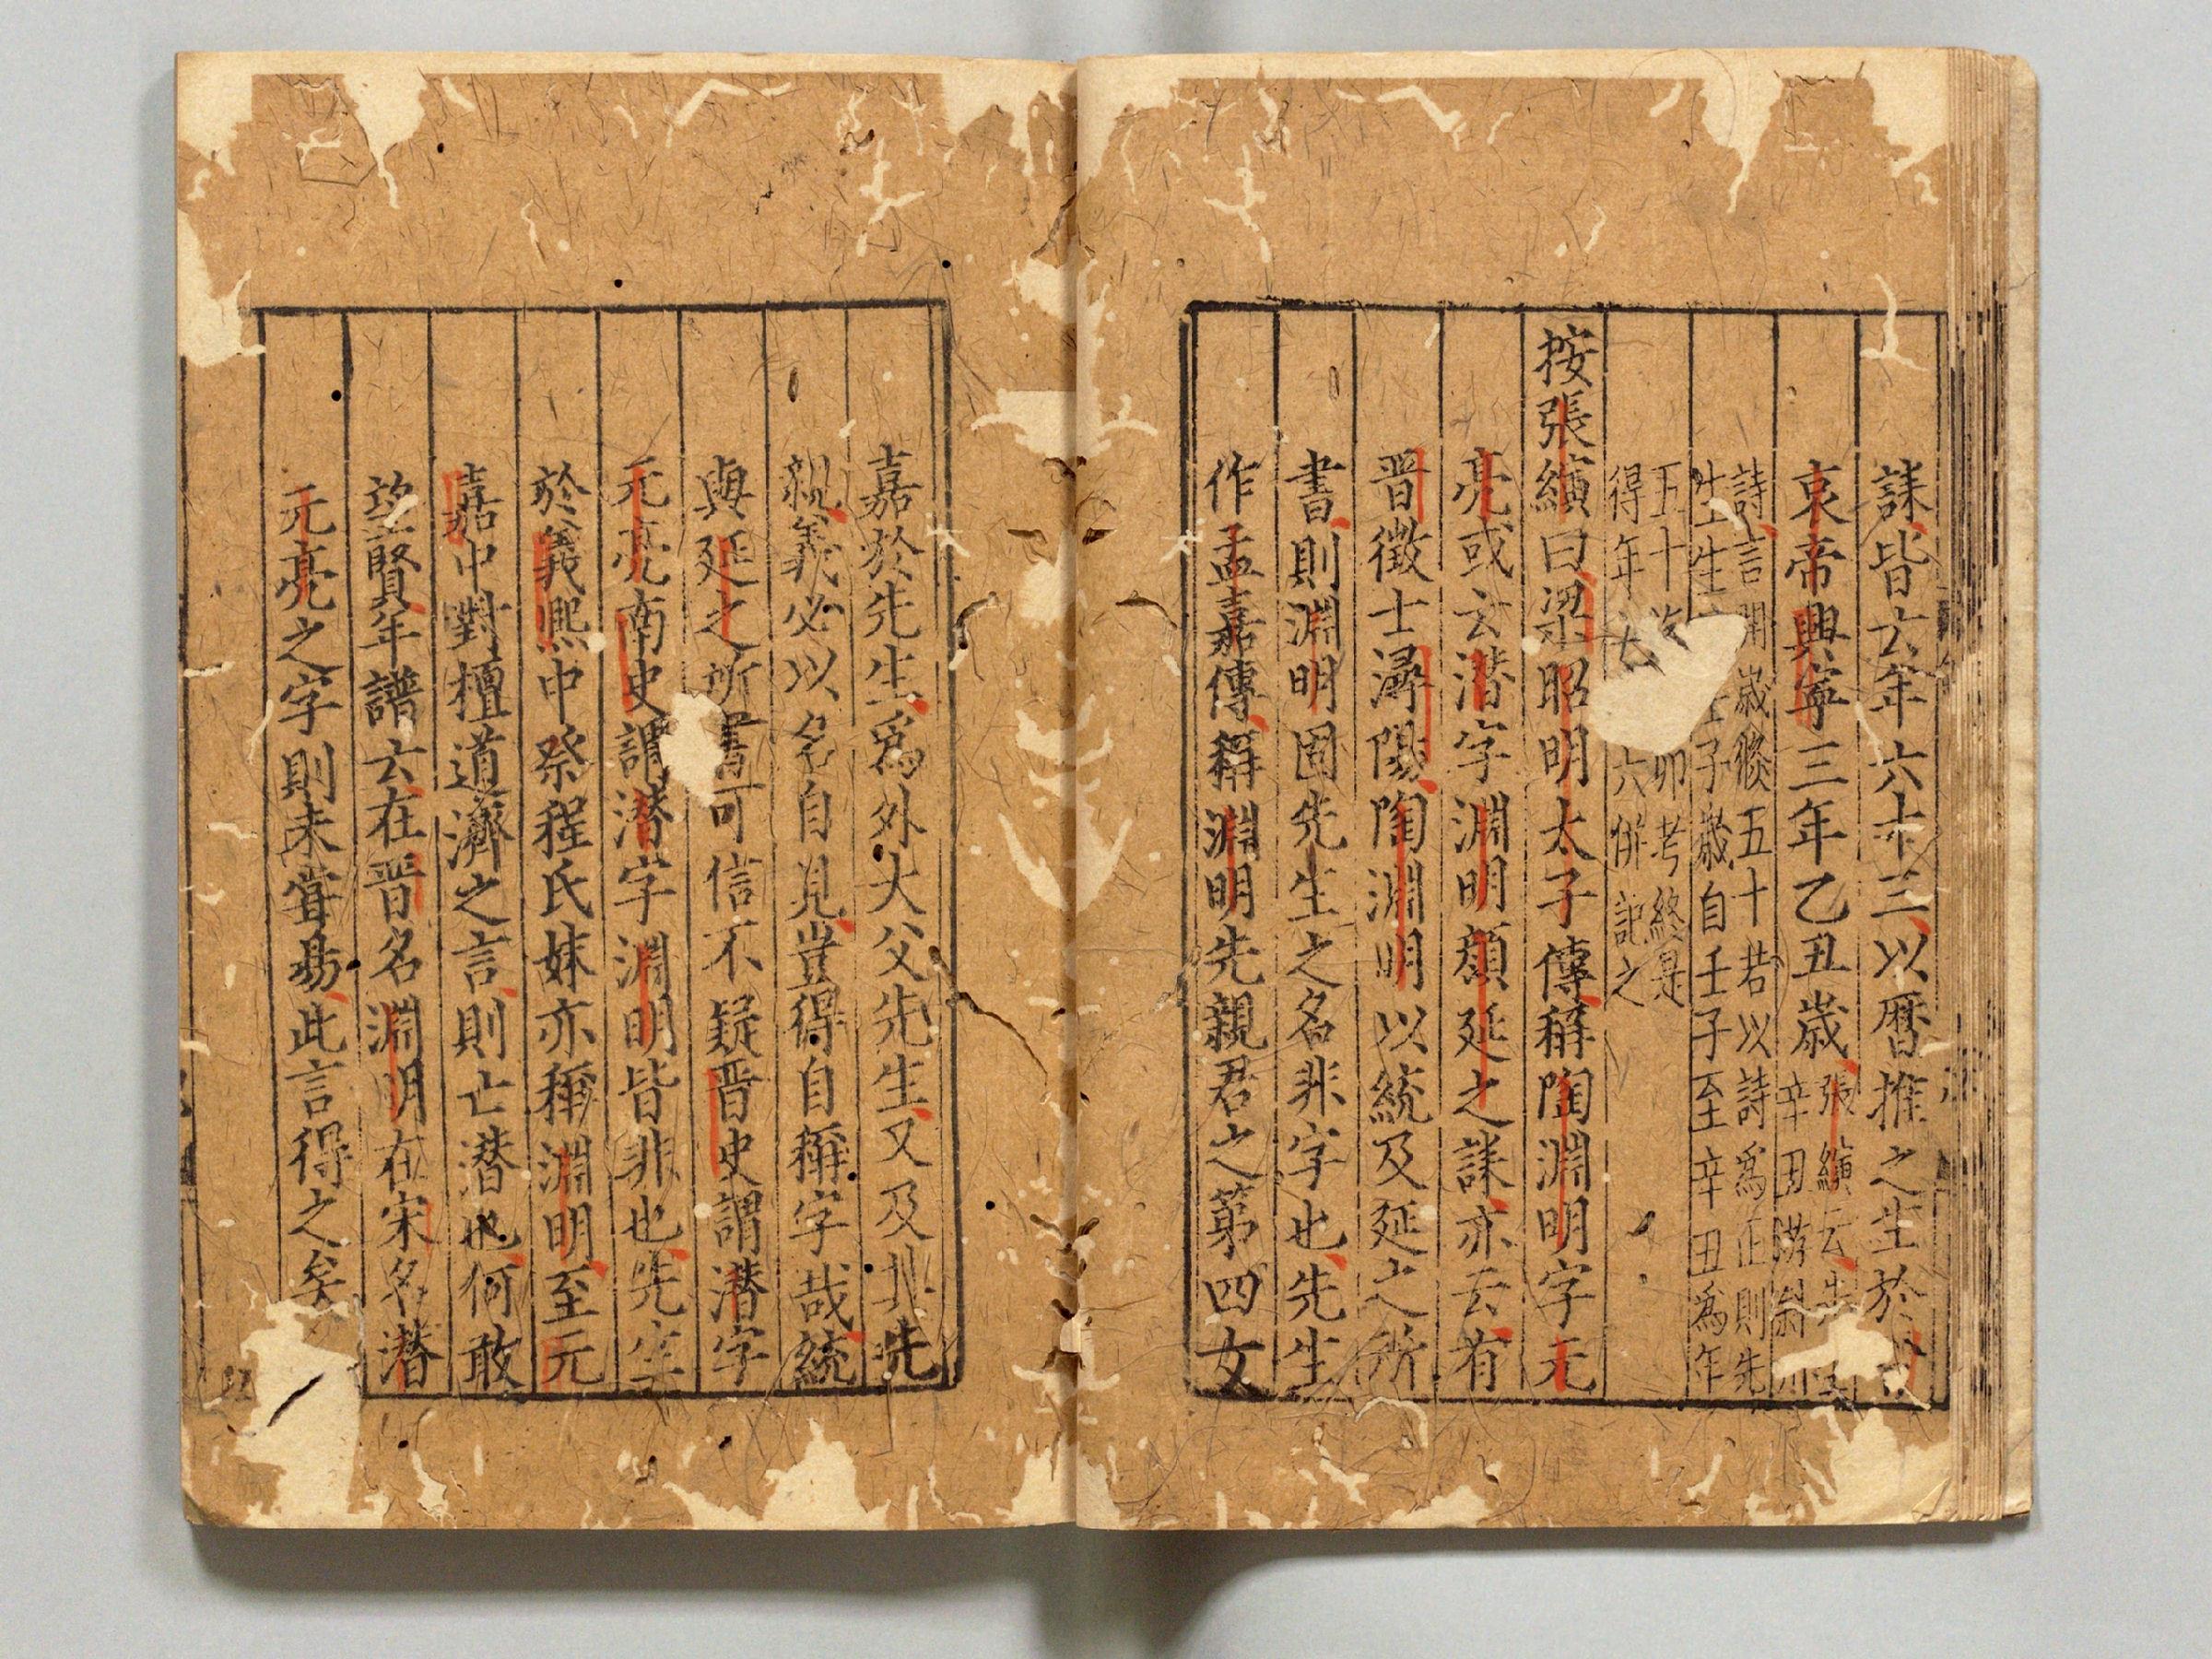 誄皆云年六十三以曆推之生於
哀帝興寧三年乙丑歲張縯云先
辛丑游斜川
詩言開歲倐五十若以詩爲正則先
生生
壬子歲自壬子至辛丑爲年
五十迄
卯考終是
得年
六併記之
按張縯曰梁昭明太子傳稱陶淵明字元
亮或云潜字淵明顔延之誄亦云有
晋徵士潯陽陶淵明以統及延之所
書則淵明固先生之名非字也先生
作孟嘉傳稱淵明先親君之第四女
嘉於先生爲外大父先生又及其先
親義必以名自見豈得自稱字哉統
與延之所書可信不疑晋史謂潜字
元亮南史謂潜字淵明皆非也先生
於義熙中祭程氏妹亦稱淵明至元
嘉中對檀道濟之言則云潜也何敢
望賢年譜云在晋名淵明在宋名潜
元亮之字則未嘗易此言得之矣